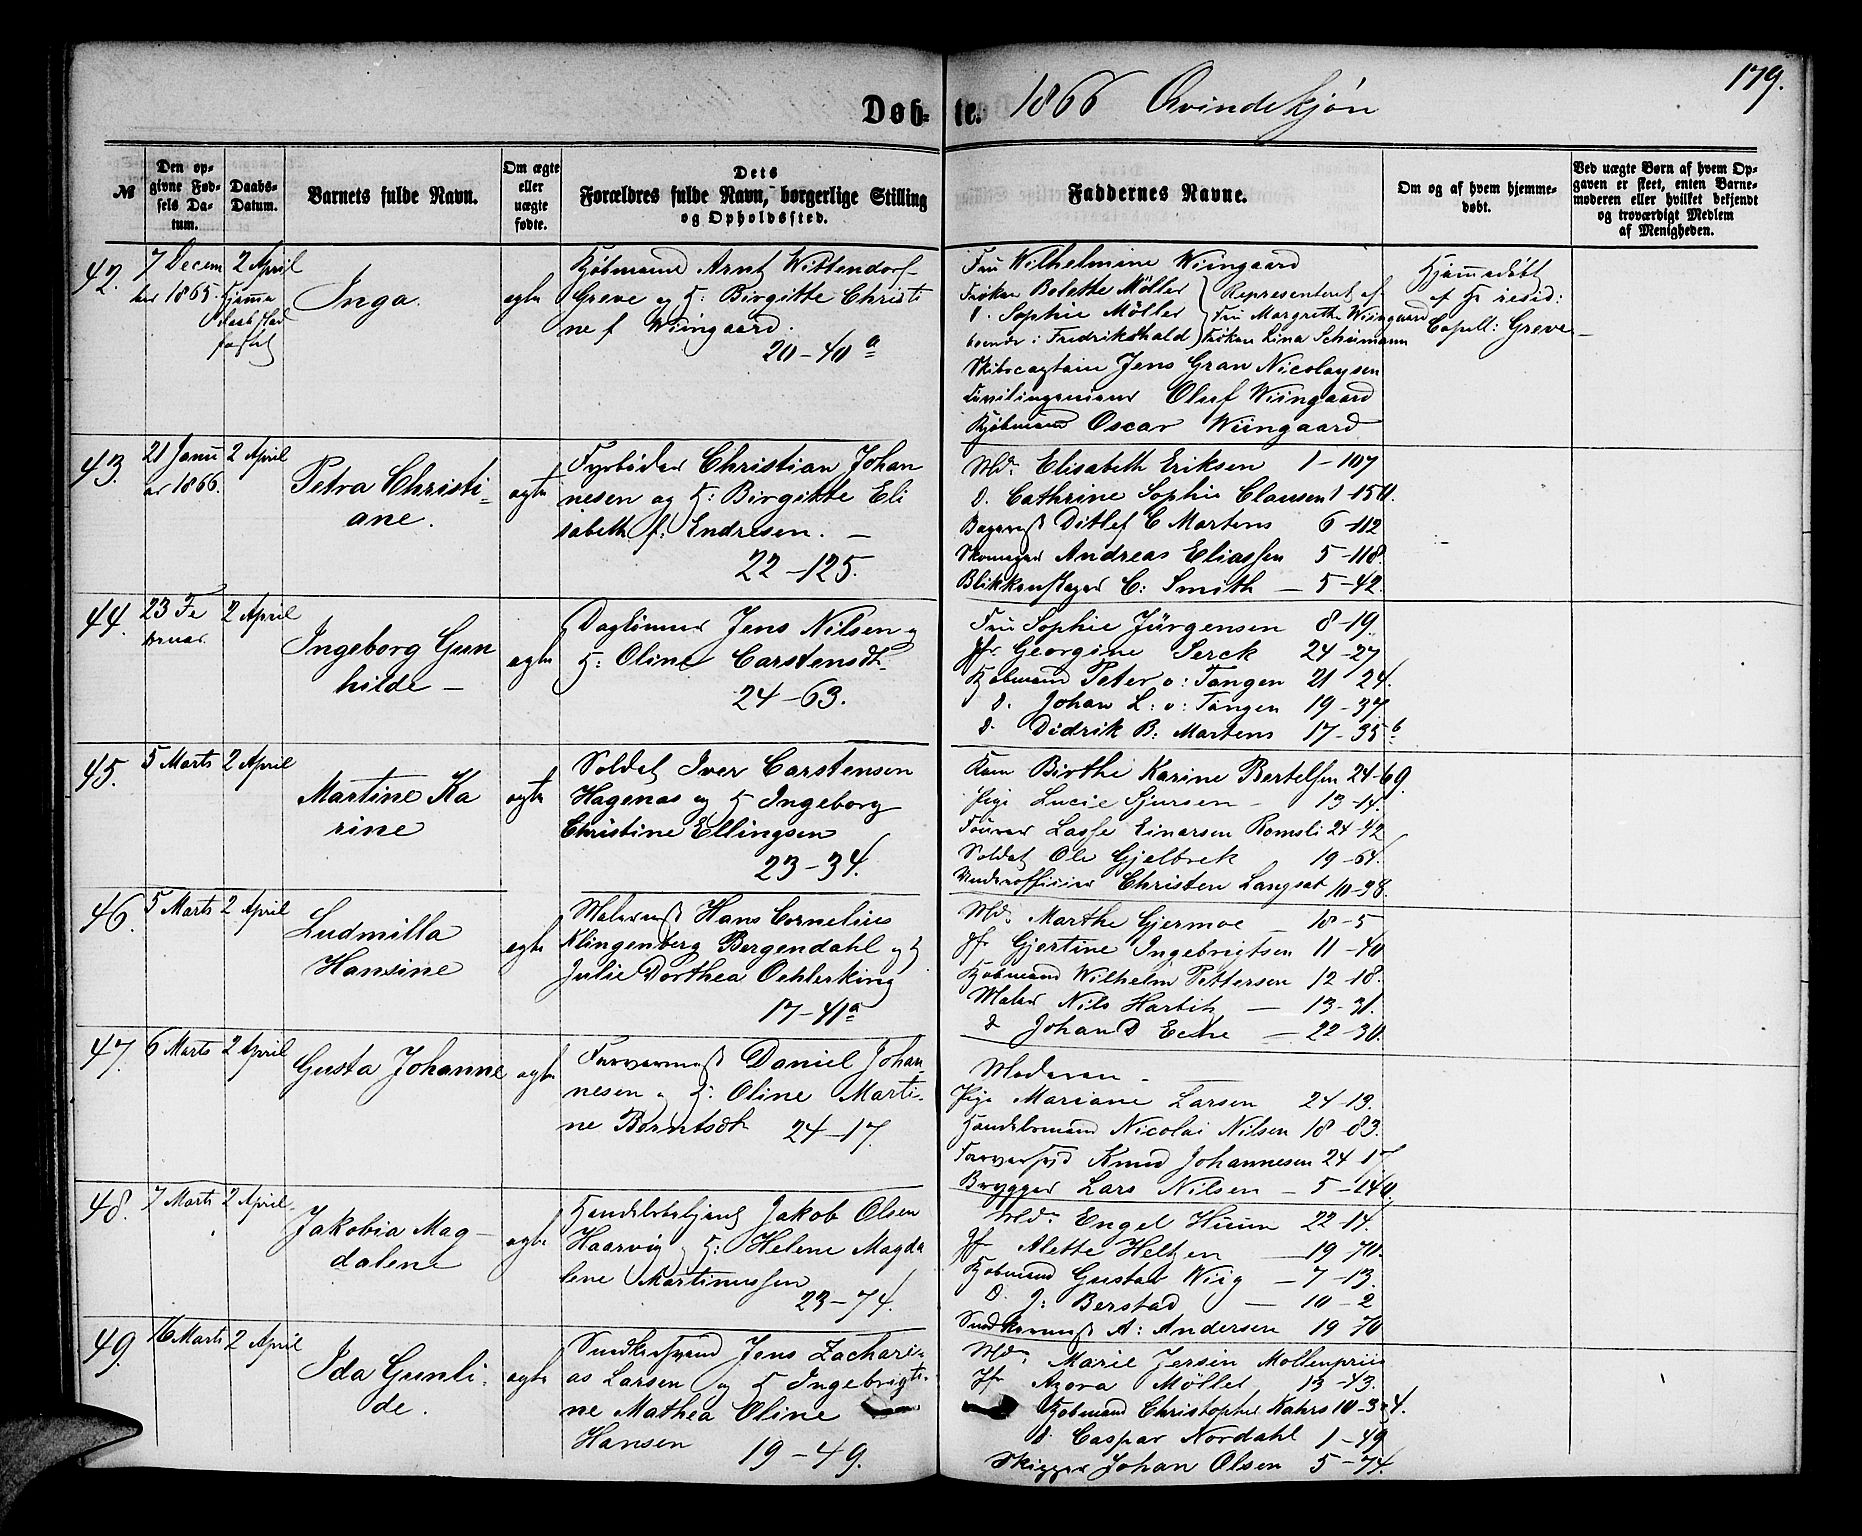 179.
Døb-te. 1866 Qvindekjøn
№
Den op-
givne Fød-
sels Da-
tum.
Daabs-
Datum.
Barnets fulde Navn.
Om ægte
eller
uægte
fødte.
Dets
Forældres fulde Navn, borgerlige Stilling
og Opholdssted.
Faddernes Navne.
Om og af hvem hjemme-
døbt.
Ved uægte Børn af hvem Op-
gaven er skeet, enten Barne-
moderen eller hvilket bekjendt
og troværdigt Medlem
af Menigheden.
42.
7 Decem
ber 1865.
2 April
Hjemme
daab stad
fæstet
Inga.
ægte
Kjøbmand Arnt Wittendorf
Greve og H: Birgitte Christi
ne f Wiingaard.
20-40 a
Fru Wilhelmine Wiingaard
Frøken Bolette Möller
d. Sophie Möller
boende i Fredrikshald
Representeret af
Fru Margrethe Wiingaard
Frøken Lina Schumann
Skibscaptain Jens Gran Nicolaysen
Civilingenieur Oluf Wiingaard
Kjøbmand Oscar Wiingaard
Hjemmedøbt
af Hr resid:
Capell: Greve
43.
21 Janu
ar 1866.
2 April
Petra Christi-
ane.
ægte
Fyrbøder Christian Johan
nesen og H: Birgitte Eli
sabeth f. Endresen. —
22-125.
Md. Elisabeth Eriksen 1-107
d. Cathrine Sophie Clausen 1-150.
Bagermst Ditlef C Martens 6-112
Skomager Andreas Eliassen 5-118.
Blikkenslager C: Smith — 5-42.
44.
23 Fe
bruar.
2 April
Ingeborg Gun
hilde —
ægte
Daglønner Jens Nilsen og
H: Oline Carstensdt.
24-63.
Fru Sophie Jürgensen 8-19.
Jfr Georgine Serck 24-27
Kjøbmand Peter v: Tangen 21-24.
d. Johan L: v: Tangen 19-37
d. Didrik B: Martens 17-35 b
45.
5 Marts
2 April
Martine Ka
rine
ægte
Soldat Iver Carstensen
Hagenas og H Ingeborg
Christine Ellingsen
23-34.
Kone Birthe Karine Bertelsen 24-69.
Pige Lucie Sjursen - 13-14.
Fourer Lasse Einarsen Romsli 24-42
Soldat Ole Gjelbrek 19-64.
Underofficier Christen Langsæt 10-38.
46.
5 Marts
2 April
Ludmilla
Hansine
ægte
Malermst Hans Cornelius
Klingenberg Bergendahl og H
Julie Dorthea Oehlerking
17-41 a
Md. Marthe Gjermoe — 18-5
Jfr Gjertine Ingebrigtsen 11-40
Kjøbmand Wilhelm Pettersen 12-18.
Maler Nils Harbitz — 13-31.
d Johan D Eche — 22-30.
47.
6 Marts
2 April
Gusta Johanne
ægte
Farvermst Daniel Johan
nesen og H: Oline Marti-
ne Berntsdt 24-17.
Moderen —
Pige Mariane Larsen 24-19.
Handelsmand Nicolai Nilsen 18-83.
Farversvd Knud Johannesen 24-17
Brygger Lars Nilsen — 5-140.
48.
7 Marts
2 April.
Jakobia Mag-
dalene
ægte
Handelsbetjent Jakob Olsen
Haarvig og H: Helene Magda
lene Martinussen
23-74.
Md. Engel Huun 22-14.
Jfr Alette Heltzen — 19-70.
Kjøbmand Gustav Wiig — 7-13.
d. J: Berstad — 10-2
Snedkermst A: Andersen 19-70
49.
16 Marts
2 April
Ida Gunli-
de.
ægte
Snedkersvend Jens Zachari-
as Larsen og H Ingebrigti-
ne Mathea Oline
Hansen 19-49.
Md. Marie Jersin Møllenpriis
Jfr Azora Möller 13-43.
Kjøbmand Christopher Kahrs 10-34.
d. Caspar Nordahl 1-49
Skipper Johan Olsen 5-74.